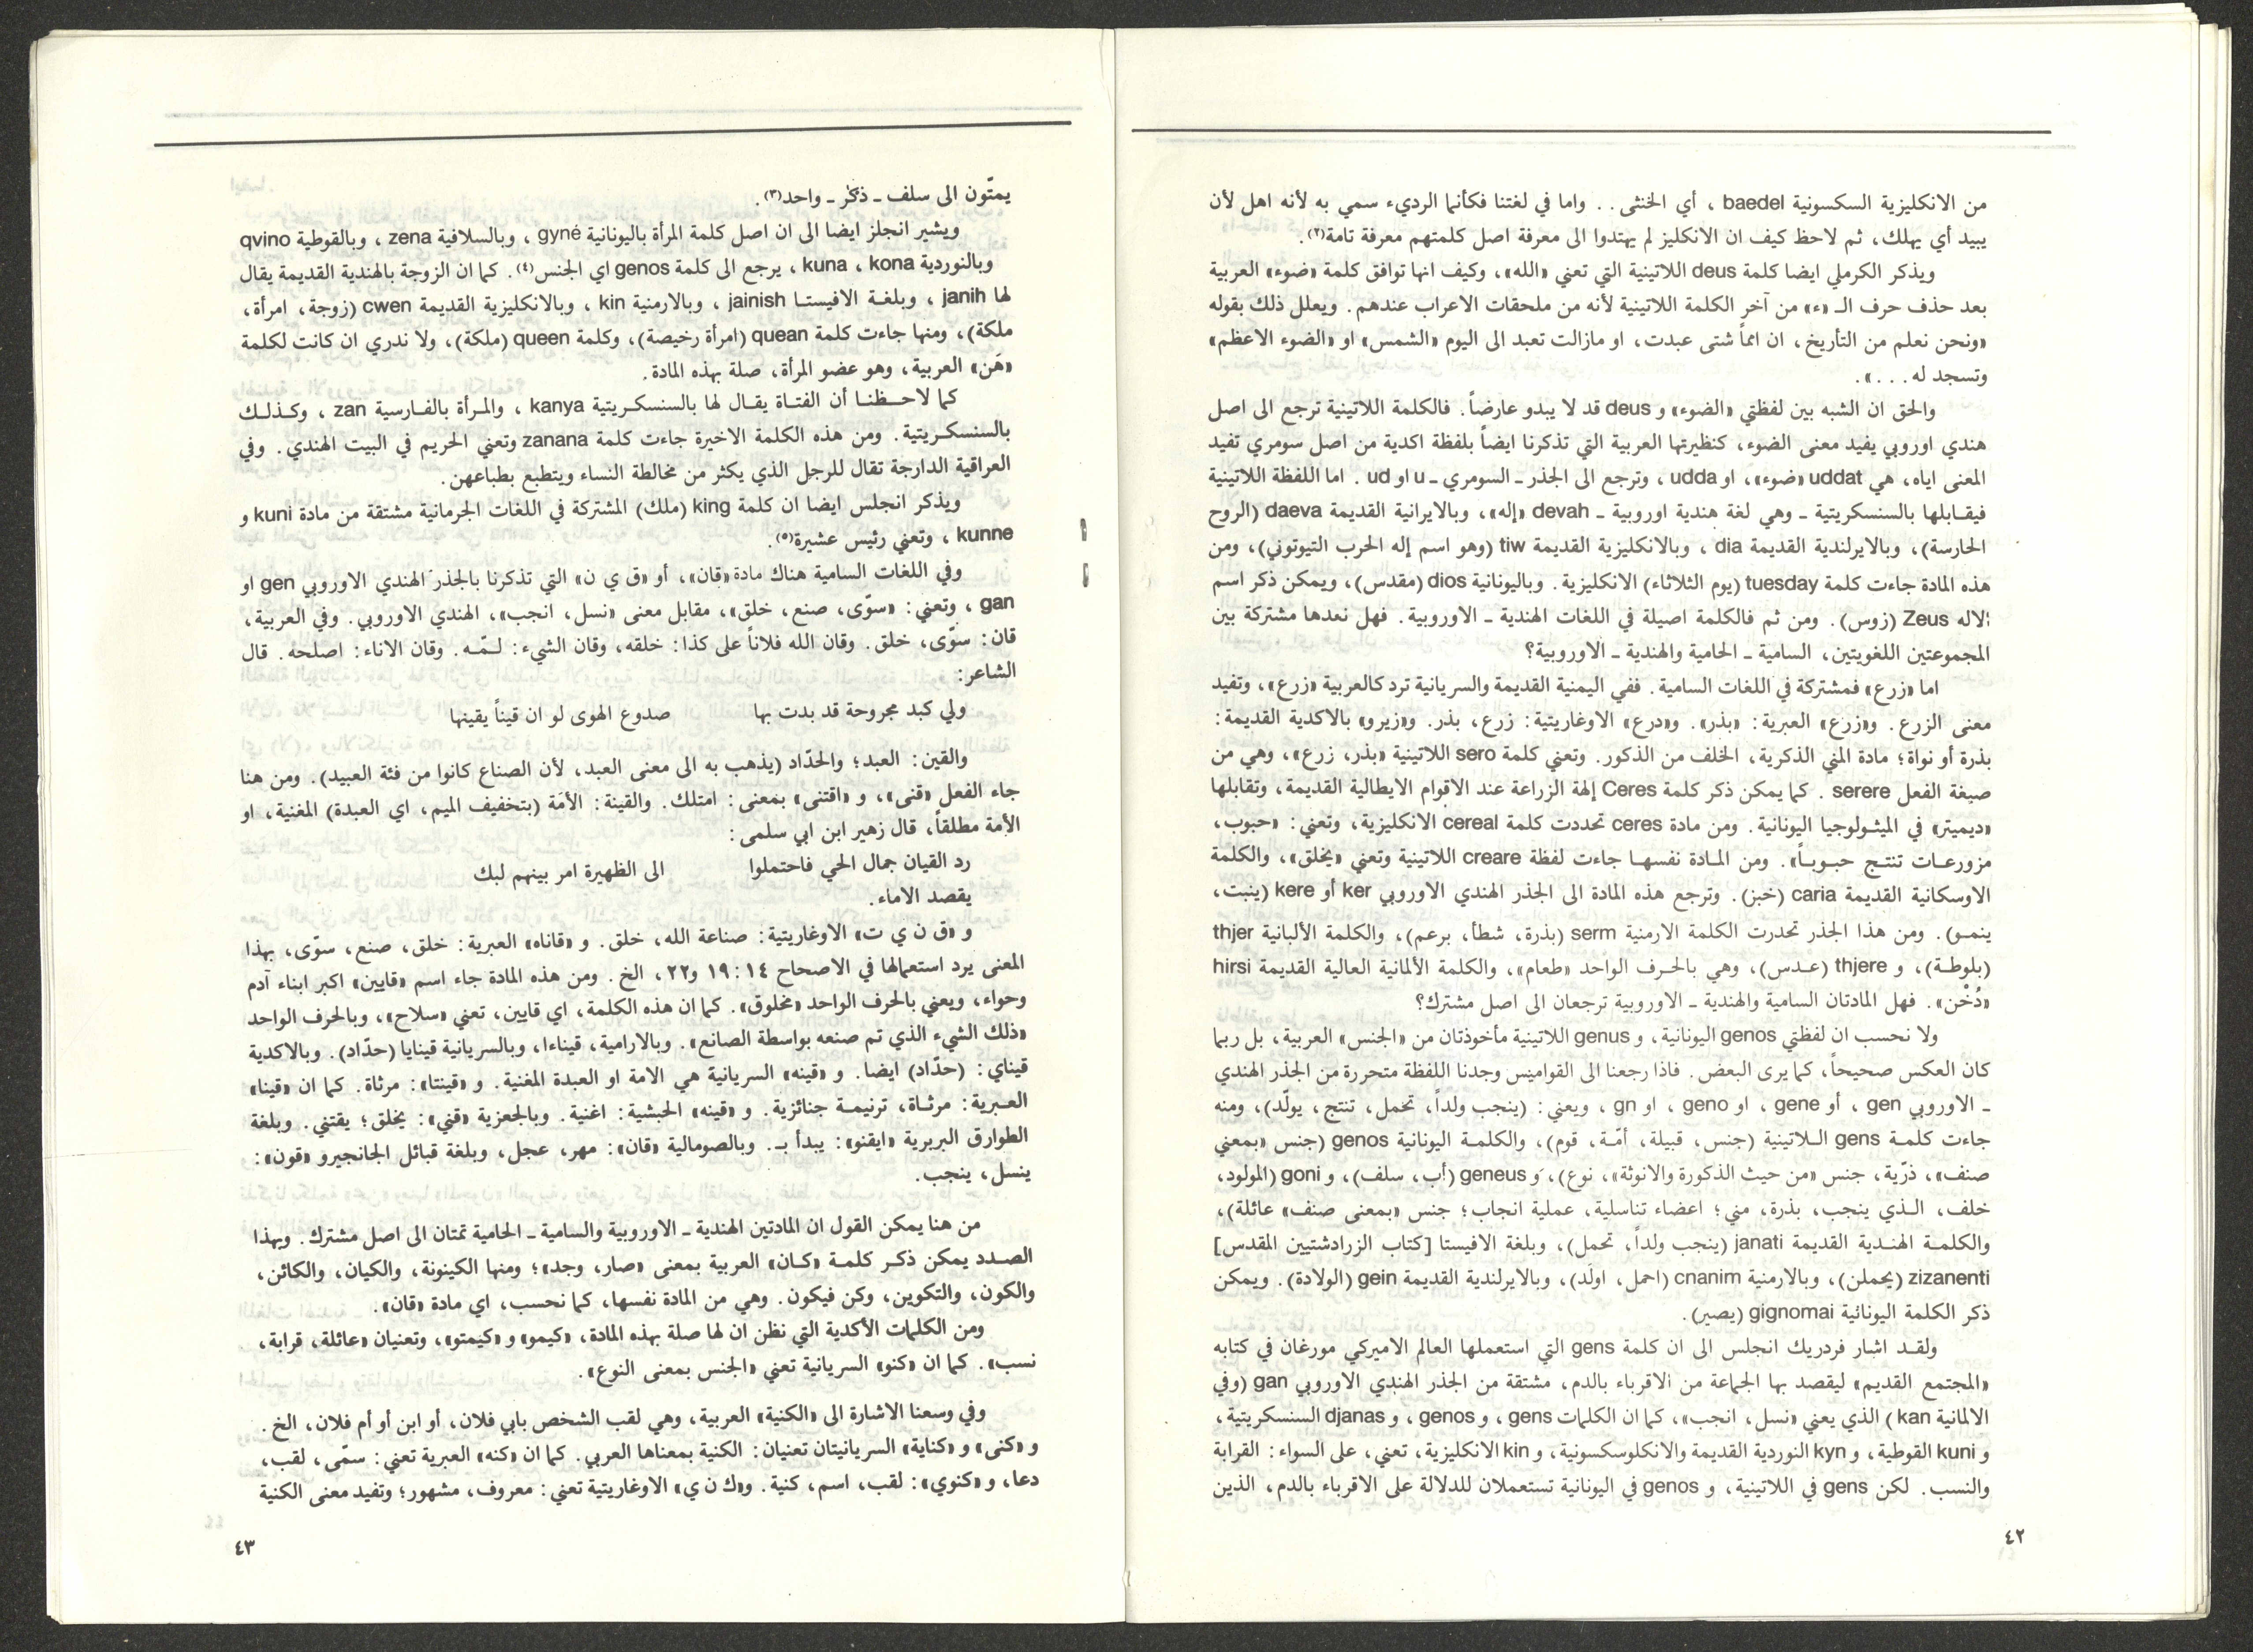 من الانكليزية السكسونية baedel ، أي الخنثى . . واما في لغتنا فكأنما الرديء سمي به لأنه اهل لأن
يبيد أي يهلك، ثم لاحظ كيف ان الانكليز لم يهتدوا الى معرفة اصل كلمتهم معرفة تامة(٢).
ويذكر الكرملي ايضا كلمة deus اللاتينية التي تعني «الله»، وكيف انها توافق كلمة «ضوء» العربية
بعد حذف حرف الـ «ء» من آخر الكلمة اللاتينية لأنه من ملحقات الاعراب عندهم . ويعلل ذلك بقوله
«ونحن نعلم من التأريخ، ان امماً شتى عبدت، او مازالت تعبد الى اليوم «الشمس» او «الضوء الاعظم»
وتسجد له . . . ».
والحق ان الشبه بين لفظتي «الضوء» و deus قد لا يبدو عارضاً. فالكلمة اللاتينية ترجع الى اصل
هندي اوروبي يفيد معنى الضوء، كنظيرتها العربية التي تذكرنا ايضاً بلفظة اكدية من اصل سومري تفيد
المعنى اياه، هي uddat «ضوء»، او udda ، وترجع الى الجذر ـ السومري ـ u او ud . اما اللفظة اللاتينية
فيقـابلها بالسنسكريتية ـ وهي لغة هندية اوروبية ـ devah «إله»، وبالايرانية القديمة daeva (الروح
الحارسة)، وبالايرلندية القديمة dia ، وبالانكليزية القديمة tiw (وهو اسم إله الحرب التيوتوني)، ومن
هذه المادة جاءت كلمة tuesday (يوم الثلاثاء) الانكليزية. وباليونانية dios (مقدس)، ويمكن ذكر اسم
الاله Zeus (زوس). ومن ثم فالكلمة اصيلة في اللغات الهندية ـ الاوروبية. فهل نعدها مشتركة بين
المجموعتين اللغويتين، السامية ـ الحامية والهندية ـ الاوروبية؟
اما «زرع» فمشتركة في اللغات السامية. ففي اليمنية القديمة والسريانية ترد كالعربية «زرع»، وتفيد
معنى الزرع. و«زرع» العبرية: «بذر». و«درع» الاوغاريتية: زرع، بذر. و«زيرو» بالاكدية القديمة:
بذرة أو نواة؛ مادة المني الذكرية، الخلف من الذكور. وتعني كلمة sero اللاتينية «بذر، زرع»، وهي من
صيغة الفعل serere . كما يمكن ذكر كلمة Ceres إلهة الزراعة عند الاقوام الايطالية القديمة، وتقابلها
«ديميتر» في الميثولوجيا اليونانية. ومن مادة ceres تحددت كلمة cereal الانكليزية، وتعني: «حبوب،
مزروعـات تنتـج حبـوبـاً». ومن المـادة نفسهـا جاءت لفظة creare اللاتينية وتعني «يخلق»، والكلمة
الاوسكانية القديمة caria (خبز). وترجع هذه المادة الى الجذر الهندي الاوروبي ker أو kere (ينبت،
ينمـو). ومن هذا الجذر تحدرت الكلمة الارمنية serm (بذرة، شطأ، برعم)، والكلمة الألبانية thjer
(بلوطـة)، و thjere (عـدس)، وهي بالحـرف الواحد «طعام»، والكلمة الألمانية العالية القديمة hirsi
«دُخْن». فهل المادتان السامية والهندية ـ الاوروبية ترجعان الى اصل مشترك؟
ولا نحسب ان لفظتي genos اليونانية، و genus اللاتينية مأخوذتان من «الجنس» العربية، بل ربما
كان العكس صحيحاً، كما يرى البعض. فاذا رجعنا الى القواميس وجدنا اللفظة متحررة من الجذر الهندي
ـ الاوروبي gen ، أو gene ، او geno ، او gn ، ويعني: (ينجب ولداً، تحمل، تنتج، يولّد)، ومنه
جاءت كلمـة gens الـلاتينية (جنس، قبيلة، أمّـة، قوم)، والكلمـة اليونانية genos (جنس «بمعني
صنف»، ذرّية، جنس «من حيث الذكورة والانوثة»، نوع)، و geneus (أب، سلف)، و goni (المولود،
خلف، الـذي ينجب، بذرة، مني؛ اعضاء تناسلية، عملية انجاب؛ جنس «بمعنى صنف» عائلة)،
والكلمـة الهنـدية القديمة janati (ينجب ولداً، تحمل)، وبلغة الافيستا [كتاب الزرادشتيين المقدس]
zizanenti (يحملن)، وبالارمنية cnanim (احمل، اولَد)، وبالايرلندية القديمة gein (الولادة). ويمكن
ذكر الكلمة اليونانية gignomai (يصير).
ولقـد اشار فردريك انجلس الى ان كلمة gens التي استعملها العالم الاميركي مورغان في كتابه
«المجتمع القديم» ليقصد بها الجماعة من الاقرباء بالدم، مشتقة من الجذر الهندي الاوروبي gan (وفي
الالمانية kan) الذي يعني «نسل، انجب»، كما ان الكلمات gens ، و genos ، و djanas السنسكريتية،
و kuni القوطية، و kyn النوردية القديمة والانكلوسكسونية، و kin الانكليزية، تعني، على السواء: القرابة
والنسب. لكن gens في اللاتينية، و genos في اليونانية تستعملان للدلالة على الاقرباء بالدم، الذين
٤٢
يمتّون الى سلف ـ ذكَر ـ واحد(٣).
ويشير انجلز ايضا الى ان اصل كلمة المرأة باليونانية gyné ، وبالسلافية zena ، وبالقوطية qvino
وبالنوردية kuna ، kona ، يرجع الى كلمة genos اي الجنس(٤). كما ان الزوجة بالهندية القديمة يقال
لها janih ، وبلغـة الافيستـا jainish ، وبالارمنية kin ، وبالانكليزية القديمة cwen (زوجة، امرأة،
ملكة)، ومنها جاءت كلمة quean (امرأة رخيصة)، وكلمة queen (ملكة)، ولا ندري ان كانت لكلمة
«هَن» العربية، وهو عضو المرأة، صلة بهذه المادة.
كما لاحـظنـا أن الفتـاة يقـال لها بالسنسكـريتية kanya ، والمـرأة بالفـارسية zan ، وكـذلـك
بالسنسكـريتية. ومن هذه الكلمة الاخيرة جاءت كلمة zanana وتعني الحريم في البيت الهندي. وفي
العراقية الدارجة تقال للرجل الذي يكثر من مخالطة النساء ويتطبع بطباعهن.
ويذكر انجلس ايضا ان كلمة king (ملك) المشتركة في اللغات الجرمانية مشتقة من مادة kuni و
kunne ، وتعني رئيس عشيرة(٥).
وفي اللغات السامية هناك مادة «قان»، أو «ق ي ن» التي تذكرنا بالجذر الهندي الاوروبي gen او
gan ، وتعني: «سوّى، صنع، خلق»، مقابل معنى «نسل، انجب»، الهندي الاوروبي. وفي العربية،
قان: سوّى، خلق. وقان الله فلاناً على كذا: خلقه، وقان الشيء: لـمّـه. وقان الاناء: اصلحه. قال
الشاعر:
ولي كبد مجروحة قد بدت بها صدوع الهوى لو ان قيناً يقينها
والقين: العبد؛ والحدّاد (يذهب به الى معنى العبد، لأن الصناع كانوا من فئة العبيد). ومن هنا
جاء الفعل «قنى»، و «اقتنى» بمعنى: امتلك. والقينة: الأمَة (بتخفيف الميم، اي العبدة) المغنية، او
الأمة مطلقاً، قال زهير ابن ابي سلمى:
رد القيان جمال الحي فاحتملوا الى الظهيرة امر بينهم لبك
يقصد الاماء.
و «ق ن ي ت» الاوغاريتية: صناعة الله، خلق. و «قاناه» العبرية: خلق، صنع، سوّى، بهذا
المعنى يرد استعمالها في الاصحاح ١٤: ١٩ و٢٢، الخ. ومن هذه المادة جاء اسم «قايين» اكبر ابناء آدم
وحواء، ويعني بالحرف الواحد «مخلوق». كما ان هذه الكلمة، اي قايين، تعني «سلاح»، وبالحرف الواحد
«ذلك الشيء الذي تم صنعه بواسطة الصانع». وبالارامية، قيناءا، وبالسريانية قينايا (حدّاد). وبالاكدية
قيناي: (حدّاد) ايضا. و «قينه» السريانية هي الامة او العبدة المغنية. و «قينتا»: مرثاة. كما ان «قينا»
العـبرية: مرثـاة، ترنيمـة جنائزية. و «قينه» الحبشية: اغنية. وبالجعزية «قني»: يخلق؛ يقتني. وبلغة
الطوارق البربرية «ايقنو»: يبدأ بـ. وبالصومالية «قان»: مهر، عجل، وبلغة قبائل الجانجيرو «قون»:
ينسل، ينجب.
من هنا يمكن القول ان المادتين الهندية ـ الاوروبية والسامية ـ الحامية تمتان الى اصل مشترك. وبهذا
الصـدد يمكن ذكـر كلمـة «كـان» العربية بمعنى «صار، وجد»؛ ومنها الكينونة، والكيان، والكائن،
والكون، والتكوين، وكن فيكون. وهي من المادة نفسها، كما نحسب، اي مادة «قان».
ومن الكلمات الأكدية التي نظن ان لها صلة بهذه المادة، «كيمو» و «كيمتو»، وتعنيان «عائلة، قرابة،
نسب». كما ان «كنو» السريانية تعني «الجنس بمعنى النوع».
وفي وسعنا الاشارة الى «الكنية» العربية، وهي لقب الشخص بابي فلان، أو ابن أو أم فلان، الخ.
و «كنى» و «كناية» السريانيتان تعنيان: الكنية بمعناها العربي. كما ان «كنه» العبرية تعني: سمّى، لقب،
دعا، و «كنوي»: لقب، اسم، كنية. و«ك ن ي» الاوغاريتية تعني: معروف، مشهور؛ وتفيد معنى الكنية
٤٣